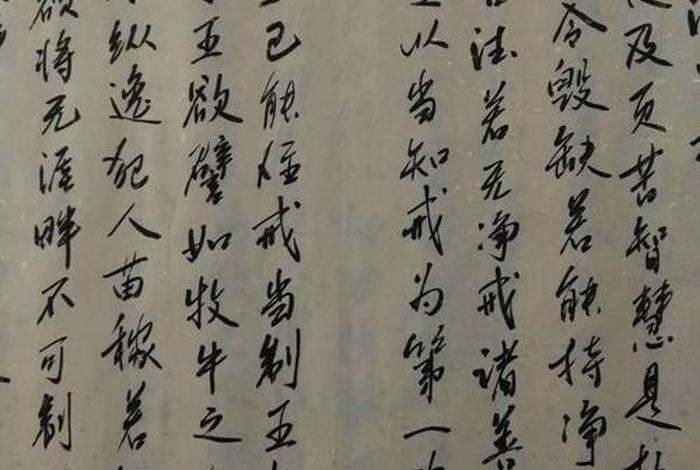 及灭苦智慧是
令毁缺若能持净
法若无净戒诸善
以当知戒为第一
已能住戒当制五
五欲譬如牧牛之
纵逸犯人苗稼若
欲将无涯畔不可制